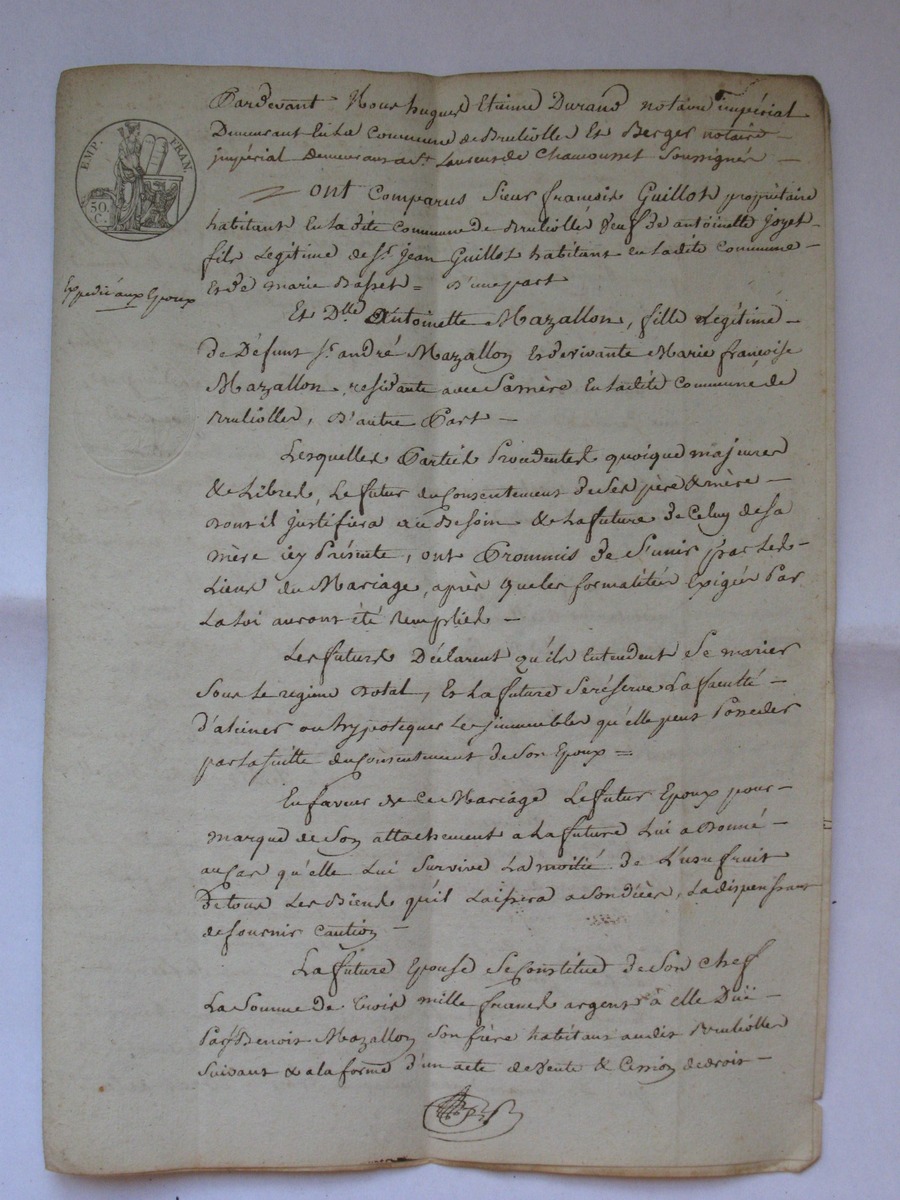 EMP. FRAN
50 C.
Pardevant Nous hugues Etienne Durand notaire impérial
Demeurant En La Commune de Bruliolles Et Berger notaire
impérial demeurant a St. Laurent de Chamousset Soussignés
Ont Comparus Sieur francois Guillot propriétaire
habitant En La dite Commune de Bruliolles Veuf de antoinette Joyet
fils Légitime de Sr. Jean Guillot habitant en la dite Commune
Et de marie Basset = D'une part
Expedié aux Epoux
Et Dlle. Antoinette Mazallon, fille Légitime
de Défunt Sr. andré Mazallon Et de vivante Marie francoise
Mazallon, residante avec Sa mère En La dite Commune de
Brulioller, D'autre Part
Lesquelles Parties Procedentes quoique majeures
& Libres, Le futur du Consentement de Ses père & mère
dont il justifiera au Besoin & La future de Celuy de Sa
mère icy Présente, ont Prommis de S'unir par Les
Liens du Mariage, après que les formalités Exigées Par
La Loi auront été Remplies
Les futurs Déclarent qu'ils Entendent Se marier
Sous Le regime Dotal, Et La future Se réserve La faculté
d'aliener ou hypotequer Les immeubles qu'elle peut Posseder
par La Suitte du Consentement de Son Epoux =
En faveur de Ce Mariage Le futur Epoux pour
marque de Son attachement a La future Lui a Donné
au Cas qu'elle Lui Survive La moitié de L'usufruit
De tous Les Biens qu'il Laissera a Son décès, La dispensant
de fournir Caution
La future Epouse Se Constitue de Son Chef
La Somme de Trois mille francs argent à elle Düe
Par Benoit Mazallon Son frère habitant audit Brulioller
Suivant & a la forme d'un acte de Vente & Cession de droit